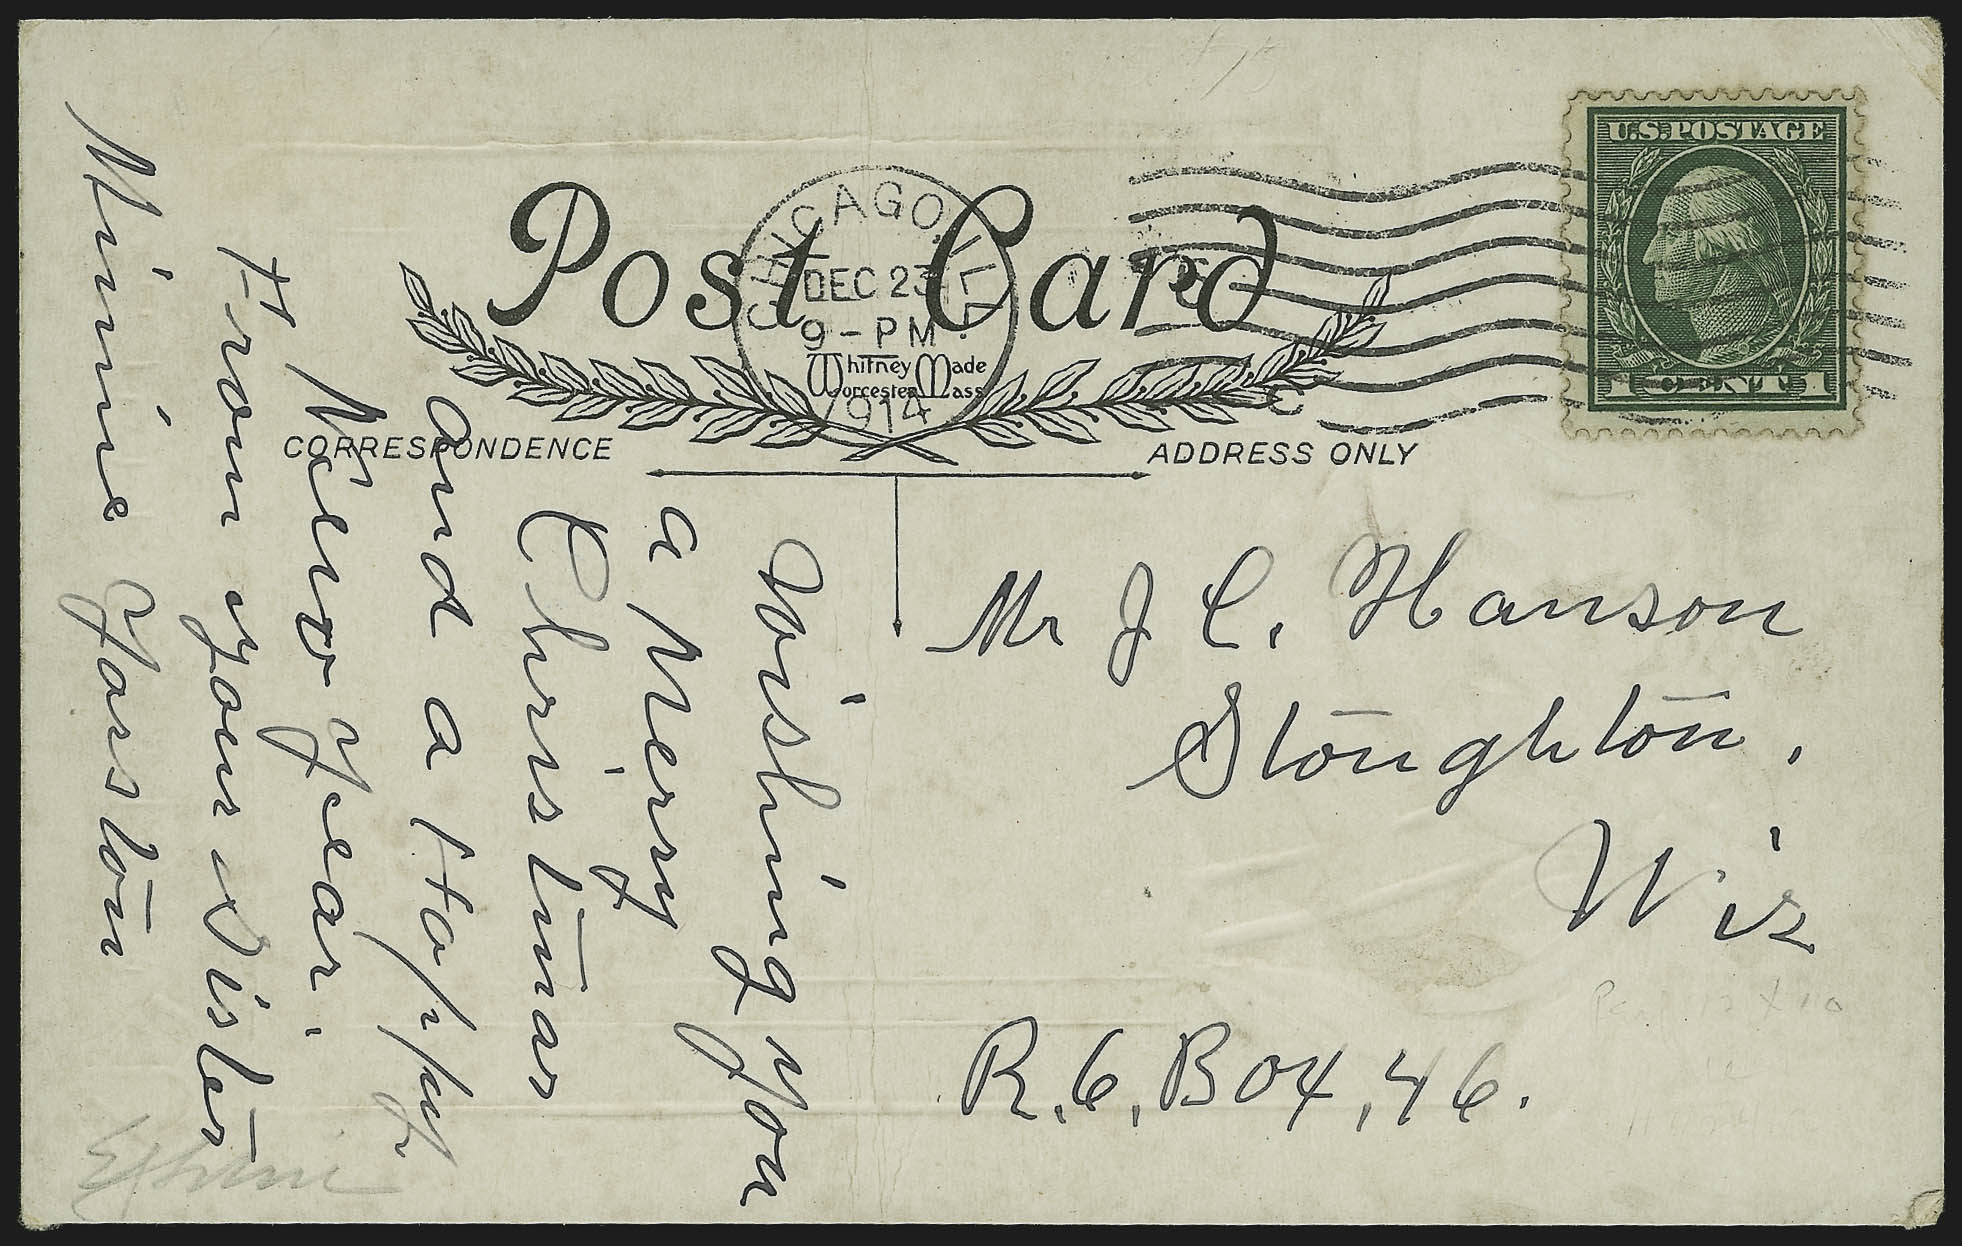 U.S. POSTAGE
1 CENT 1
CHICAGO, ILL.
DEC 23
9 - PM
1914
Post Card
Whitney Made
Worcester Mass
CORRESPONDENCE
ADDRESS ONLY
Wishing you
a Merry
Christmas
and a Happy
New Year.
From your Sister
Minnie Yorston
Mr J C. Hanson
Stoughton,
Wis
R. 6. Box, 46.